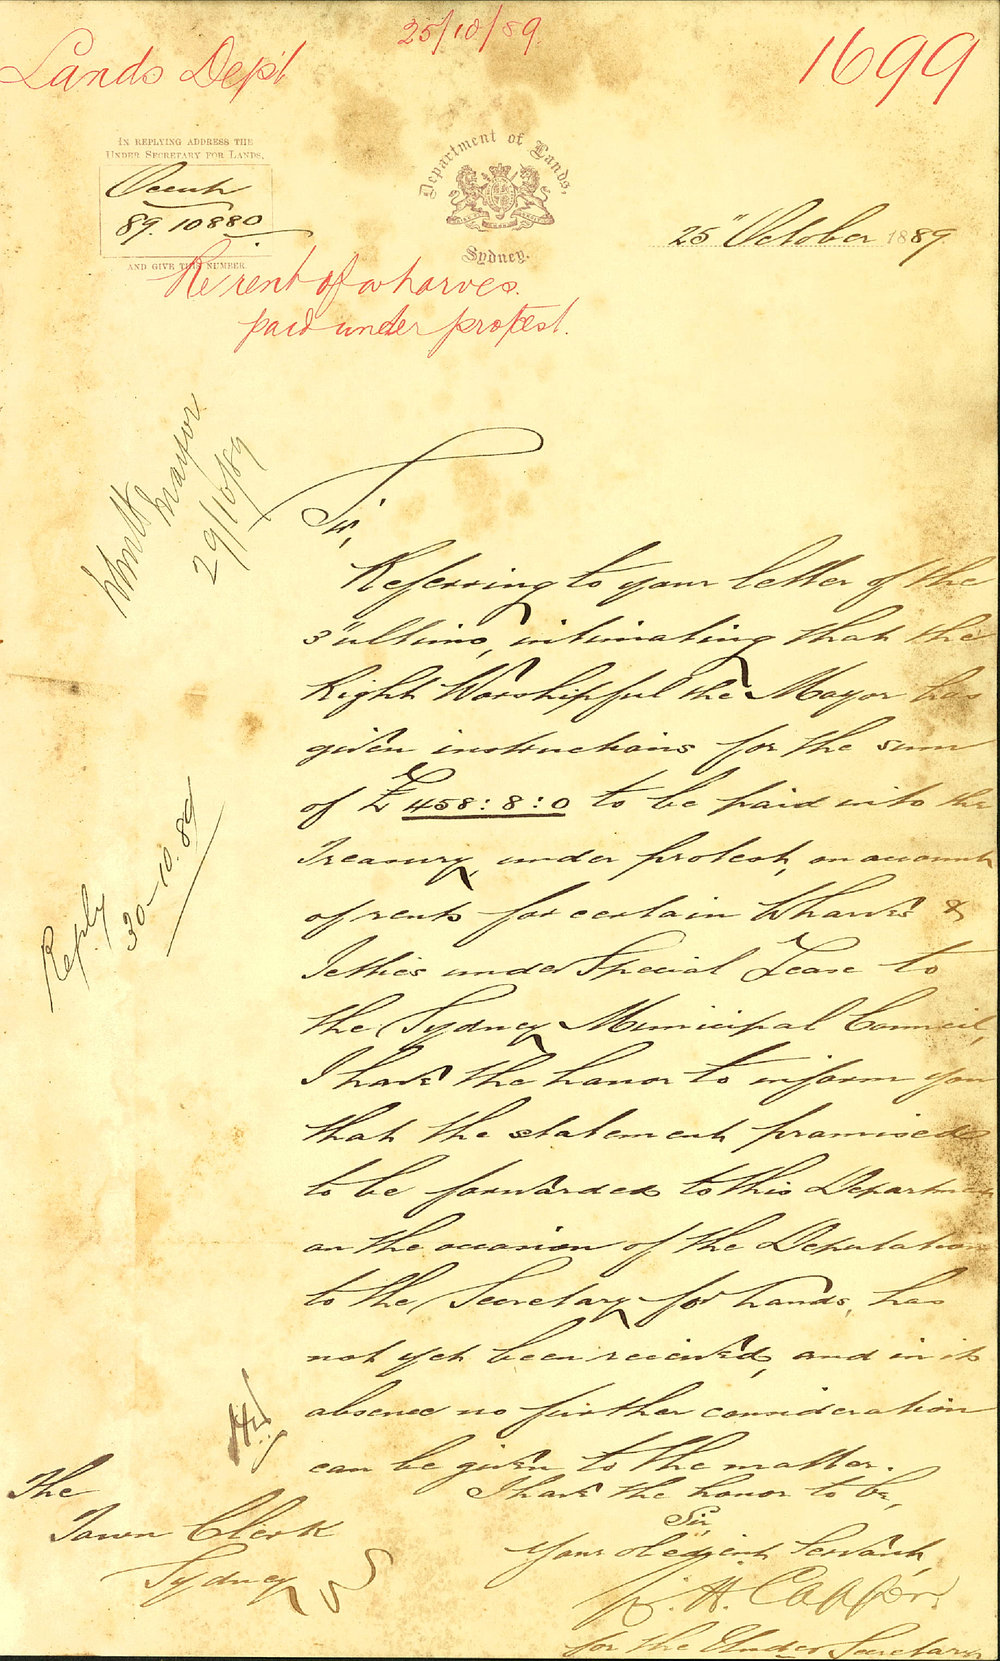 25/10/89.
Lands Dept
1699
IN REPLYING ADDRESS THE
UNDER SECRETARY FOR LANDS,
89. 10880
AND GIVE THIS NUMBER
Department of Lands,
Sydney.
25" October 1889
Re rent of wharves.
paid under protest.
Mayor
29/10/89
Sir,
Referring to your letter of the
3" ultimo, intimating that the
Right Worshipful the Mayor has
given instructions for the sum
of £458:8:0 to be paid into the
Treasury, under protest, on account
of rents for certain Wharves &
Jetties under Special Lease to
the Sydney Municipal Council,
I have the honor to inform you
that the statement promised
to be forwarded to this Department
on the occasion of the Deputation
to the Secretary for Lands, has
not yet been received, and in its
absence no further consideration
can be given to the matter.
I have the honor to be,
Sir,
Your obedient Servant,
H. Capper.
for the Under Secretary
Reply
30-10.89
The
Town Clerk
Sydney